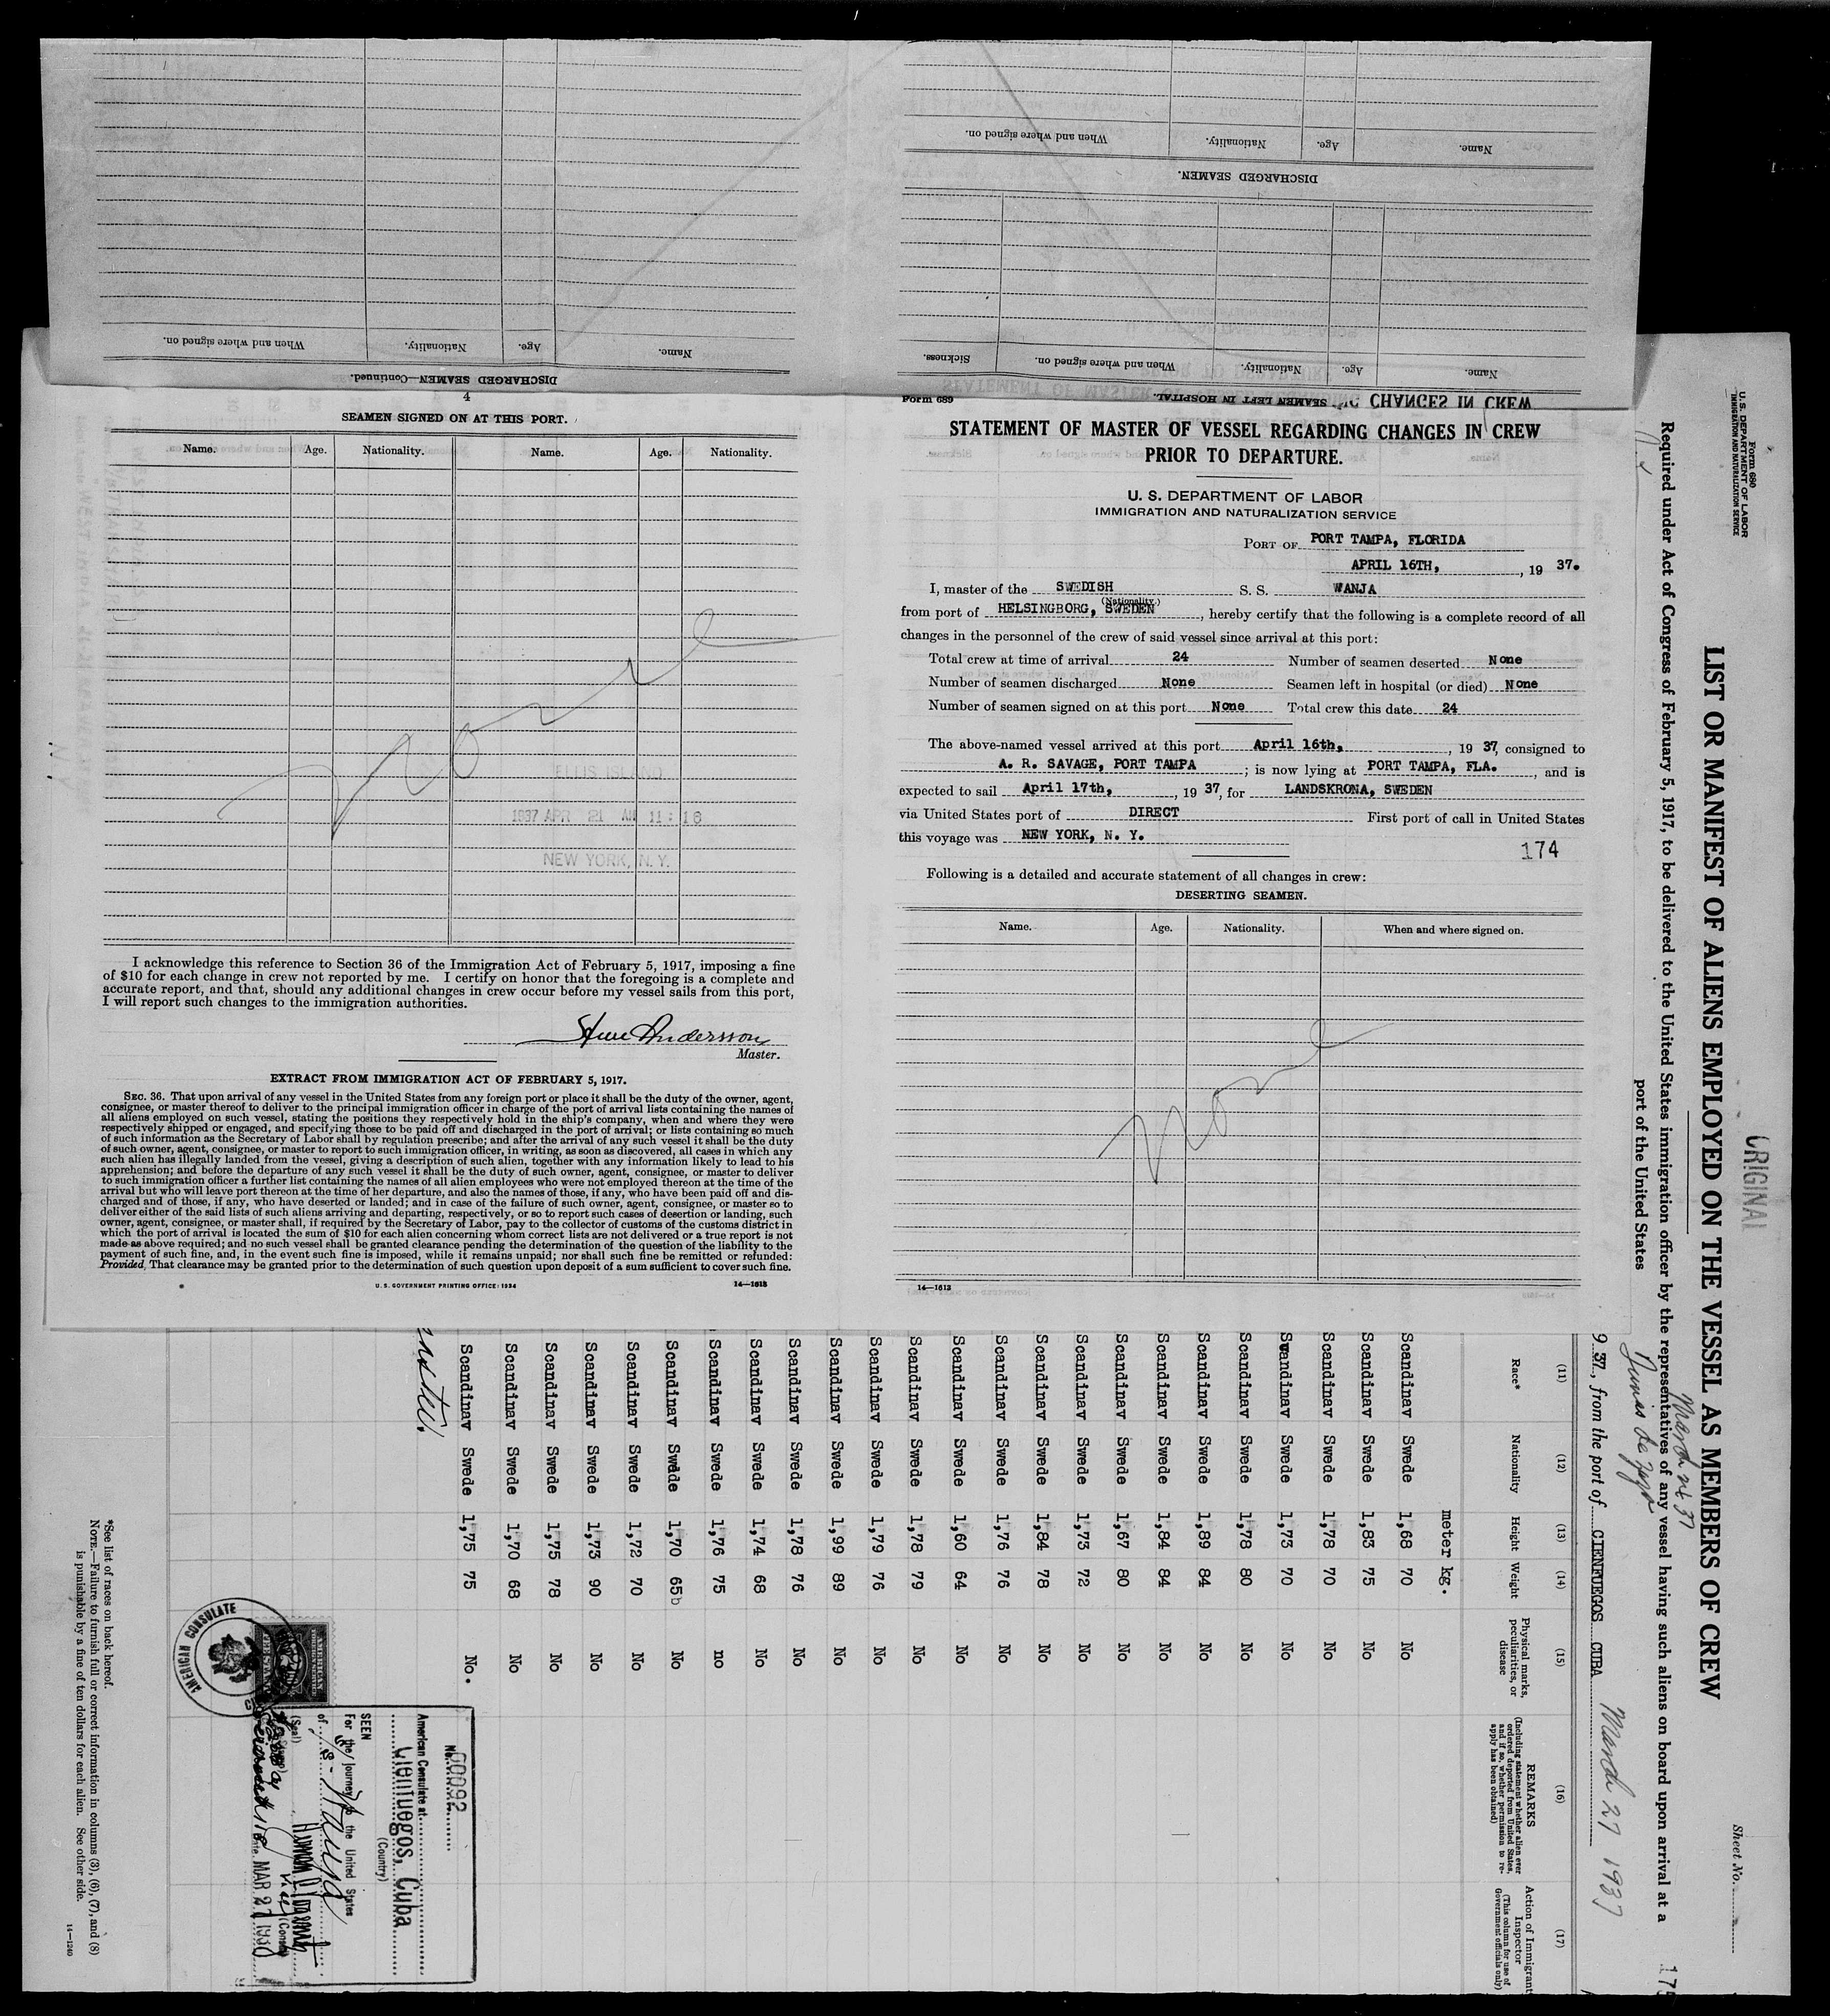 When and where signed on.
Nationality.
Age.
Name.
DISCHARGED SEAMEN—Continued.
Name.
Age.
Nationality.
When and where signed on.
DISCHARGED SEAMEN.
Name.
Age.
Nationality.
When and where signed on.
Sickness.
SEAMEN LEFT IN HOSPITAL.
CHANGES IN CREW
4
SEAMEN SIGNED ON AT THIS PORT.
Name. Age. Nationality. Name. Age. Nationality.
None
ELLIS ISLAND
1937 APR 21 AM 11:16
NEW YORK, N.Y.
I acknowledge this reference to Section 36 of the Immigration Act of February 5, 1917, imposing a fine
of $10 for each change in crew not reported by me. I certify on honor that the foregoing is a complete and
accurate report, and that, should any additional changes in crew occur before my vessel sails from this port,
I will report such changes to the immigration authorities.
Andersson
Master.
EXTRACT FROM IMMIGRATION ACT OF FEBRUARY 5, 1917.
SEC. 36. That upon arrival of any vessel in the United States from any foreign port or place it shall be the duty of the owner, agent,
consignee, or master thereof to deliver to the principal immigration officer in charge of the port of arrival lists containing the names of
all aliens employed on such vessel, stating the positions they respectively hold in the ship's company, when and where they were
respectively shipped or engaged, and specifying those to be paid off and discharged in the port of arrival; or lists containing so much
of such information as the Secretary of Labor shall by regulation prescribe; and after the arrival of any such vessel it shall be the duty
of such owner, agent, consignee, or master to report to such immigration officer, in writing, as soon as discovered, all cases in which any
such alien has illegally landed from the vessel, giving a description of such alien, together with any information likely to lead to his
apprehension; and before the departure of any such vessel it shall be the duty of such owner, agent, consignee, or master to deliver
to such immigration officer a further list containing the names of all alien employees who were not employed thereon at the time of the
arrival but who will leave port thereon at the time of her departure, and also the names of those, if any, who have been paid off and dis-
charged and of those, if any, who have deserted or landed; and in case of the failure of such owner, agent, consignee, or master so to
deliver either of the said lists of such aliens arriving and departing, respectively, or so to report such cases of desertion or landing, such
owner, agent, consignee, or master shall, if required by the Secretary of Labor, pay to the collector of customs of the customs district in
which the port of arrival is located the sum of $10 for each alien concerning whom correct lists are not delivered or a true report is not
made as above required; and no such vessel shall be granted clearance pending the determination of the question of the liability to the
payment of such fine, and, in the event such fine is imposed, while it remains unpaid; nor shall such fine be remitted or refunded:
Provided, That clearance may be granted prior to the determination of such question upon deposit of a sum sufficient to cover such fine.
U. S. GOVERNMENT PRINTING OFFICE: 1934 14—1613
Form 689
STATEMENT OF MASTER OF VESSEL REGARDING CHANGES IN CREW
PRIOR TO DEPARTURE.
U. S. DEPARTMENT OF LABOR
IMMIGRATION AND NATURALIZATION SERVICE
PORT OF PORT TAMPA, FLORIDA
APRIL 16TH, , 19 37.
I, master of the SWEDISH S. S. WANJA
(Nationality)
from port of HELSINGBORG, SWEDEN, hereby certify that the following is a complete record of all
changes in the personnel of the crew of said vessel since arrival at this port:
Total crew at time of arrival 24 Number of seamen deserted None
Number of seamen discharged None Seamen left in hospital (or died) None
Number of seamen signed on at this port None Total crew this date 24
The above-named vessel arrived at this port April 16th, , 19 37, consigned to
A. R. SAVAGE, PORT TAMPA ; is now lying at PORT TAMPA, FLA. , and is
expected to sail April 17th, , 19 37, for LANDSKRONA, SWEDEN
via United States port of DIRECT First port of call in United States
this voyage was NEW YORK, N. Y.
174
Following is a detailed and accurate statement of all changes in crew:
DESERTING SEAMEN.
Name. Age. Nationality. When and where signed on.
None
14—1613
Form 680
U. S. DEPARTMENT OF LABOR
IMMIGRATION AND NATURALIZATION SERVICE
ORIGINAL
Sheet No.
LIST OR MANIFEST OF ALIENS EMPLOYED ON THE VESSEL AS MEMBERS OF CREW
Required under Act of Congress of February 5, 1917, to be delivered to the United States immigration officer by the representatives of any vessel having such aliens on board upon arrival at a
port of the United States
175
9 37, from the port of CIENFUEGOS CUBA March 27 1937
(11) (12) (13) (14) (15) (16) (17)
Race* Nationality Height Weight Physical marks, peculiarities, or disease
REMARKS
(Including statement whether alien ever ordered deported from United States, and if so, whether permission to re-apply has been obtained)
Action of Immigrant Inspector
(This column for use of Government officials only)
meter kg.
Scandinav Swede 1,68 70 No
Scandinav Swede 1,83 75 No
Scandinav Swede 1,78 70 No
Scandinav Swede 1,73 70 No
Scandinav Swede 1,78 80 No
Scandinav Swede 1,89 84 No
Scandinav Swede 1,84 84 No
Scandinav Swede 1,67 80 No
Scandinav Swede 1,73 72 No
Scandinav Swede 1,84 78 No
Scandinav Swede 1,76 76 No
Scandinav Swede 1,60 64 No
Scandinav Swede 1,78 79 No
Scandinav Swede 1,79 76 No
Scandinav Swede 1,99 89 No
Scandinav Swede 1,78 76 No
Scandinav Swede 1,74 68 No
Scandinav Swede 1,76 75 no
Scandinav Swede 1,70 65b No
Scandinav Swede 1,72 70 No
Scandinav Swede 1,73 90 No
Scandinav Swede 1,75 78 No
Scandinav Swede 1,70 68 No
Scandinav Swede 1,75 75 No.
No. 00092
American Consulate at
Cienfuegos, Cuba
(Country)
SEEN
For the journey to the United States
of
(Seal)
MAR 27
AMERICAN CONSULATE
*See list of races on back hereof.
NOTE.—Failure to furnish full or correct information in columns (3), (6), (7), and (8)
is punishable by a fine of ten dollars for each alien. See other side.
14—1240